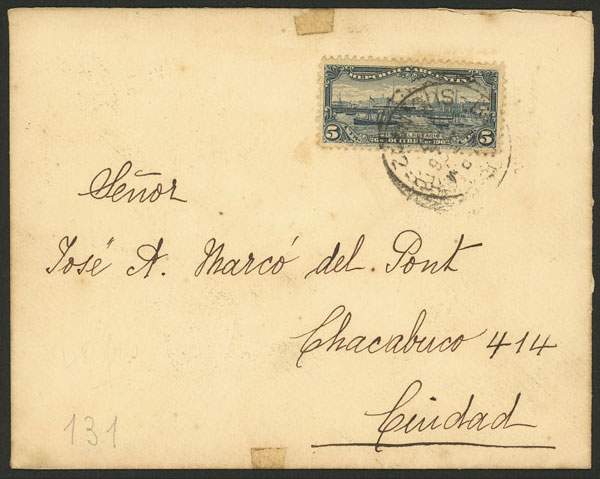 REPUBLICA ARGENTINA
5 5
26 OCTUBRE DE 1902
Señor
José A. Marcó del Pont
Chacabuco 414
Ciudad
131